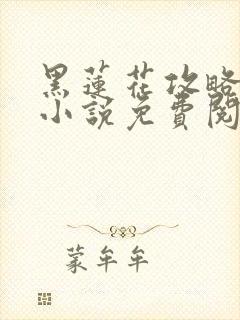 黑蓮花攻略
小說免費閱
蒙牟牟